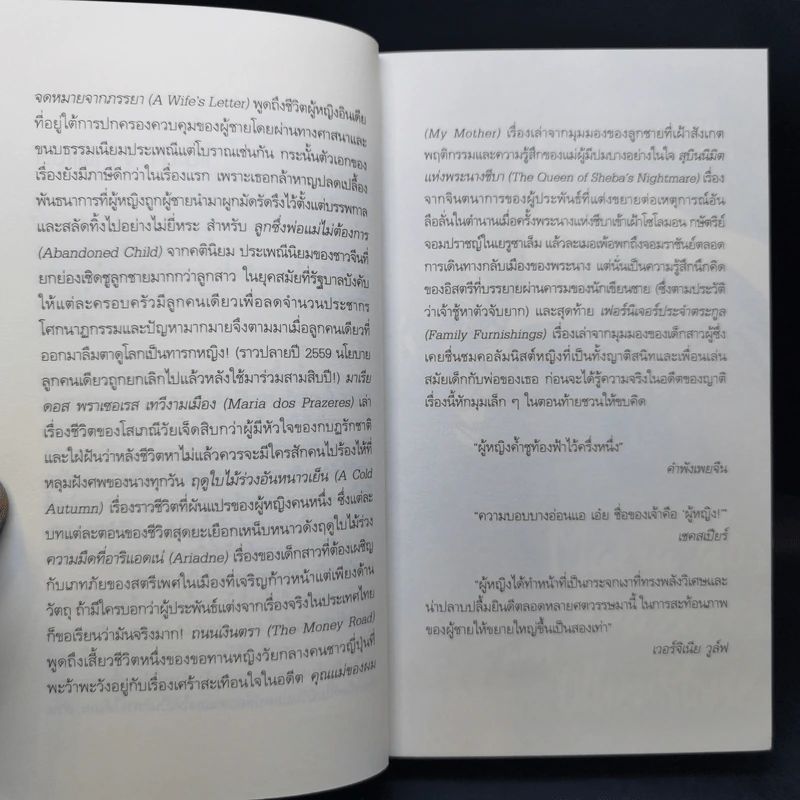 จดหมายจากภรรยา (A Wife's Letter) พูดถึงชีวิตผู้หญิงอินเดีย
ที่อยู่ใต้การปกครองควบคุมของผู้ชายโดยผ่านทางศาสนาและ
ขนบธรรมเนียมประเพณีแต่โบราณเช่นกัน กระนั้นตัวเอกของ
เรื่องยังมีภาษีดีกว่าในเรื่องแรก เพราะเธอกล้าหาญปลดเปลื้อง
พันธนาการที่ผู้หญิงถูกผู้ชายนำมาผูกมัดรัดรึงไว้ตั้งแต่บรรพกาล
และสลัดทิ้งไปอย่างไม่ยี่หระ สำหรับ ลูกซึ่งพ่อแม่ไม่ต้องการ
(Abandoned Child) จากคตินิยม ประเพณีนิยมของชาวจีนที่
ยกย่องเชิดชูลูกชายมากกว่าลูกสาว ในยุคสมัยที่รัฐบาลบังคับ
ให้แต่ละครอบครัวมีลูกคนเดียวเพื่อลดจำนวนประชากร
โศกนาฏกรรมและปัญหามากมายจึงตามมาเมื่อลูกคนเดียวที่
ออกมาลืมตาดูโลกเป็นทารกหญิง! (ราวปลายปี 2559 นโยบาย
ลูกคนเดียวถูกยกเลิกไปแล้วหลังใช้มาร่วมสามสิบปี!) มาเรีย
ดอส พราเซอเรส เทวีงามเมือง (Maria dos Prazeres) เล่า
เรื่องชีวิตของโสเภณีวัยเจ็ดสิบกว่าผู้มีหัวใจของกบฏรักชาติ
และใฝ่ฝันว่าหลังชีวิตหาไม่แล้วควรจะมีใครสักคนไปร้องไห้ที่
หลุมฝังศพของนางทุกวัน ฤดูใบไม้ร่วงอันหนาวเย็น (A Cold
Autumn) เรื่องราวชีวิตที่ผันแปรของผู้หญิงคนหนึ่ง ซึ่งแต่ละ
บทแต่ละตอนของชีวิตสุดยะเยือกเหน็บหนาวดังฤดูใบไม้ร่วง
ความมืดที่อาริแอดเน่ (Ariadne) เรื่องของเด็กสาวที่ต้องเผชิญ
กับเภทภัยของสตรีเพศในเมืองที่เจริญก้าวหน้าแต่เพียงด้าน
วัตถุ ถ้ามีใครบอกว่าผู้ประพันธ์แต่งจากเรื่องจริงในประเทศไทย
ก็ขอเรียนว่ามันจริงมาก! ถนนเงินตรา (The Money Road)
พูดถึงเสี้ยวชีวิตหนึ่งของขอทานหญิงวัยกลางคนชาวญี่ปุ่นที่
พะว้าพะวังอยู่กับเรื่องเศร้าสะเทือนใจในอดีต คุณแม่ของผม
(My Mother) เรื่องเล่าจากมุมมองของลูกชายที่เฝ้าสังเกต
พฤติกรรมและความรู้สึกของแม่ผู้มีปมบางอย่างในใจ สุบินนิมิต
แห่งพระนางชีบา (The Queen of Sheba's Nightmare) เรื่อง
จากจินตนาการของผู้ประพันธ์ที่แต่งขยายต่อเหตุการณ์อัน
ลือลั่นในตำนานเมื่อครั้งพระนางแห่งชีบาเข้าเฝ้าโซโลมอน กษัตริย์
จอมปราชญ์ในเยรูซาเล็ม แล้วละเมอเพ้อพกถึงจอมราชันย์ตลอด
การเดินทางกลับเมืองของพระนาง แต่นั่นเป็นความรู้สึกนึกคิด
ของอิสตรีที่บรรยายผ่านคารมของนักเขียนชาย (ซึ่งตามประวัติ
ว่าเจ้าชู้หาตัวจับยาก) และสุดท้าย เฟอร์นิเจอร์ประจำตระกูล
(Family Furnishings) เรื่องเล่าจากมุมมองของเด็กสาวผู้ซึ่ง
เคยชื่นชมคอลัมนิสต์หญิงที่เป็นทั้งญาติสนิทและเพื่อนเล่น
สมัยเด็กกับพ่อของเธอ ก่อนจะได้รู้ความจริงในอดีตของญาติ
เรื่องนี้หักมุมเล็ก ๆ ในตอนท้ายชวนให้ขบคิด
"ผู้หญิงค้ำชูท้องฟ้าไว้ครึ่งหนึ่ง"
คำพังเพยจีน
"ความบอบบางอ่อนแอ เอ๋ย ชื่อของเจ้าคือ 'ผู้หญิง!'"
เชคสเปียร์
"ผู้หญิงได้ทำหน้าที่เป็นกระจกเงาที่ทรงพลังวิเศษและ
น่าปลาบปลื้มยินดีตลอดหลายศตวรรษมานี้ ในการสะท้อนภาพ
ของผู้ชายให้ขยายใหญ่ขึ้นเป็นสองเท่า"
เวอร์จิเนีย วูล์ฟ